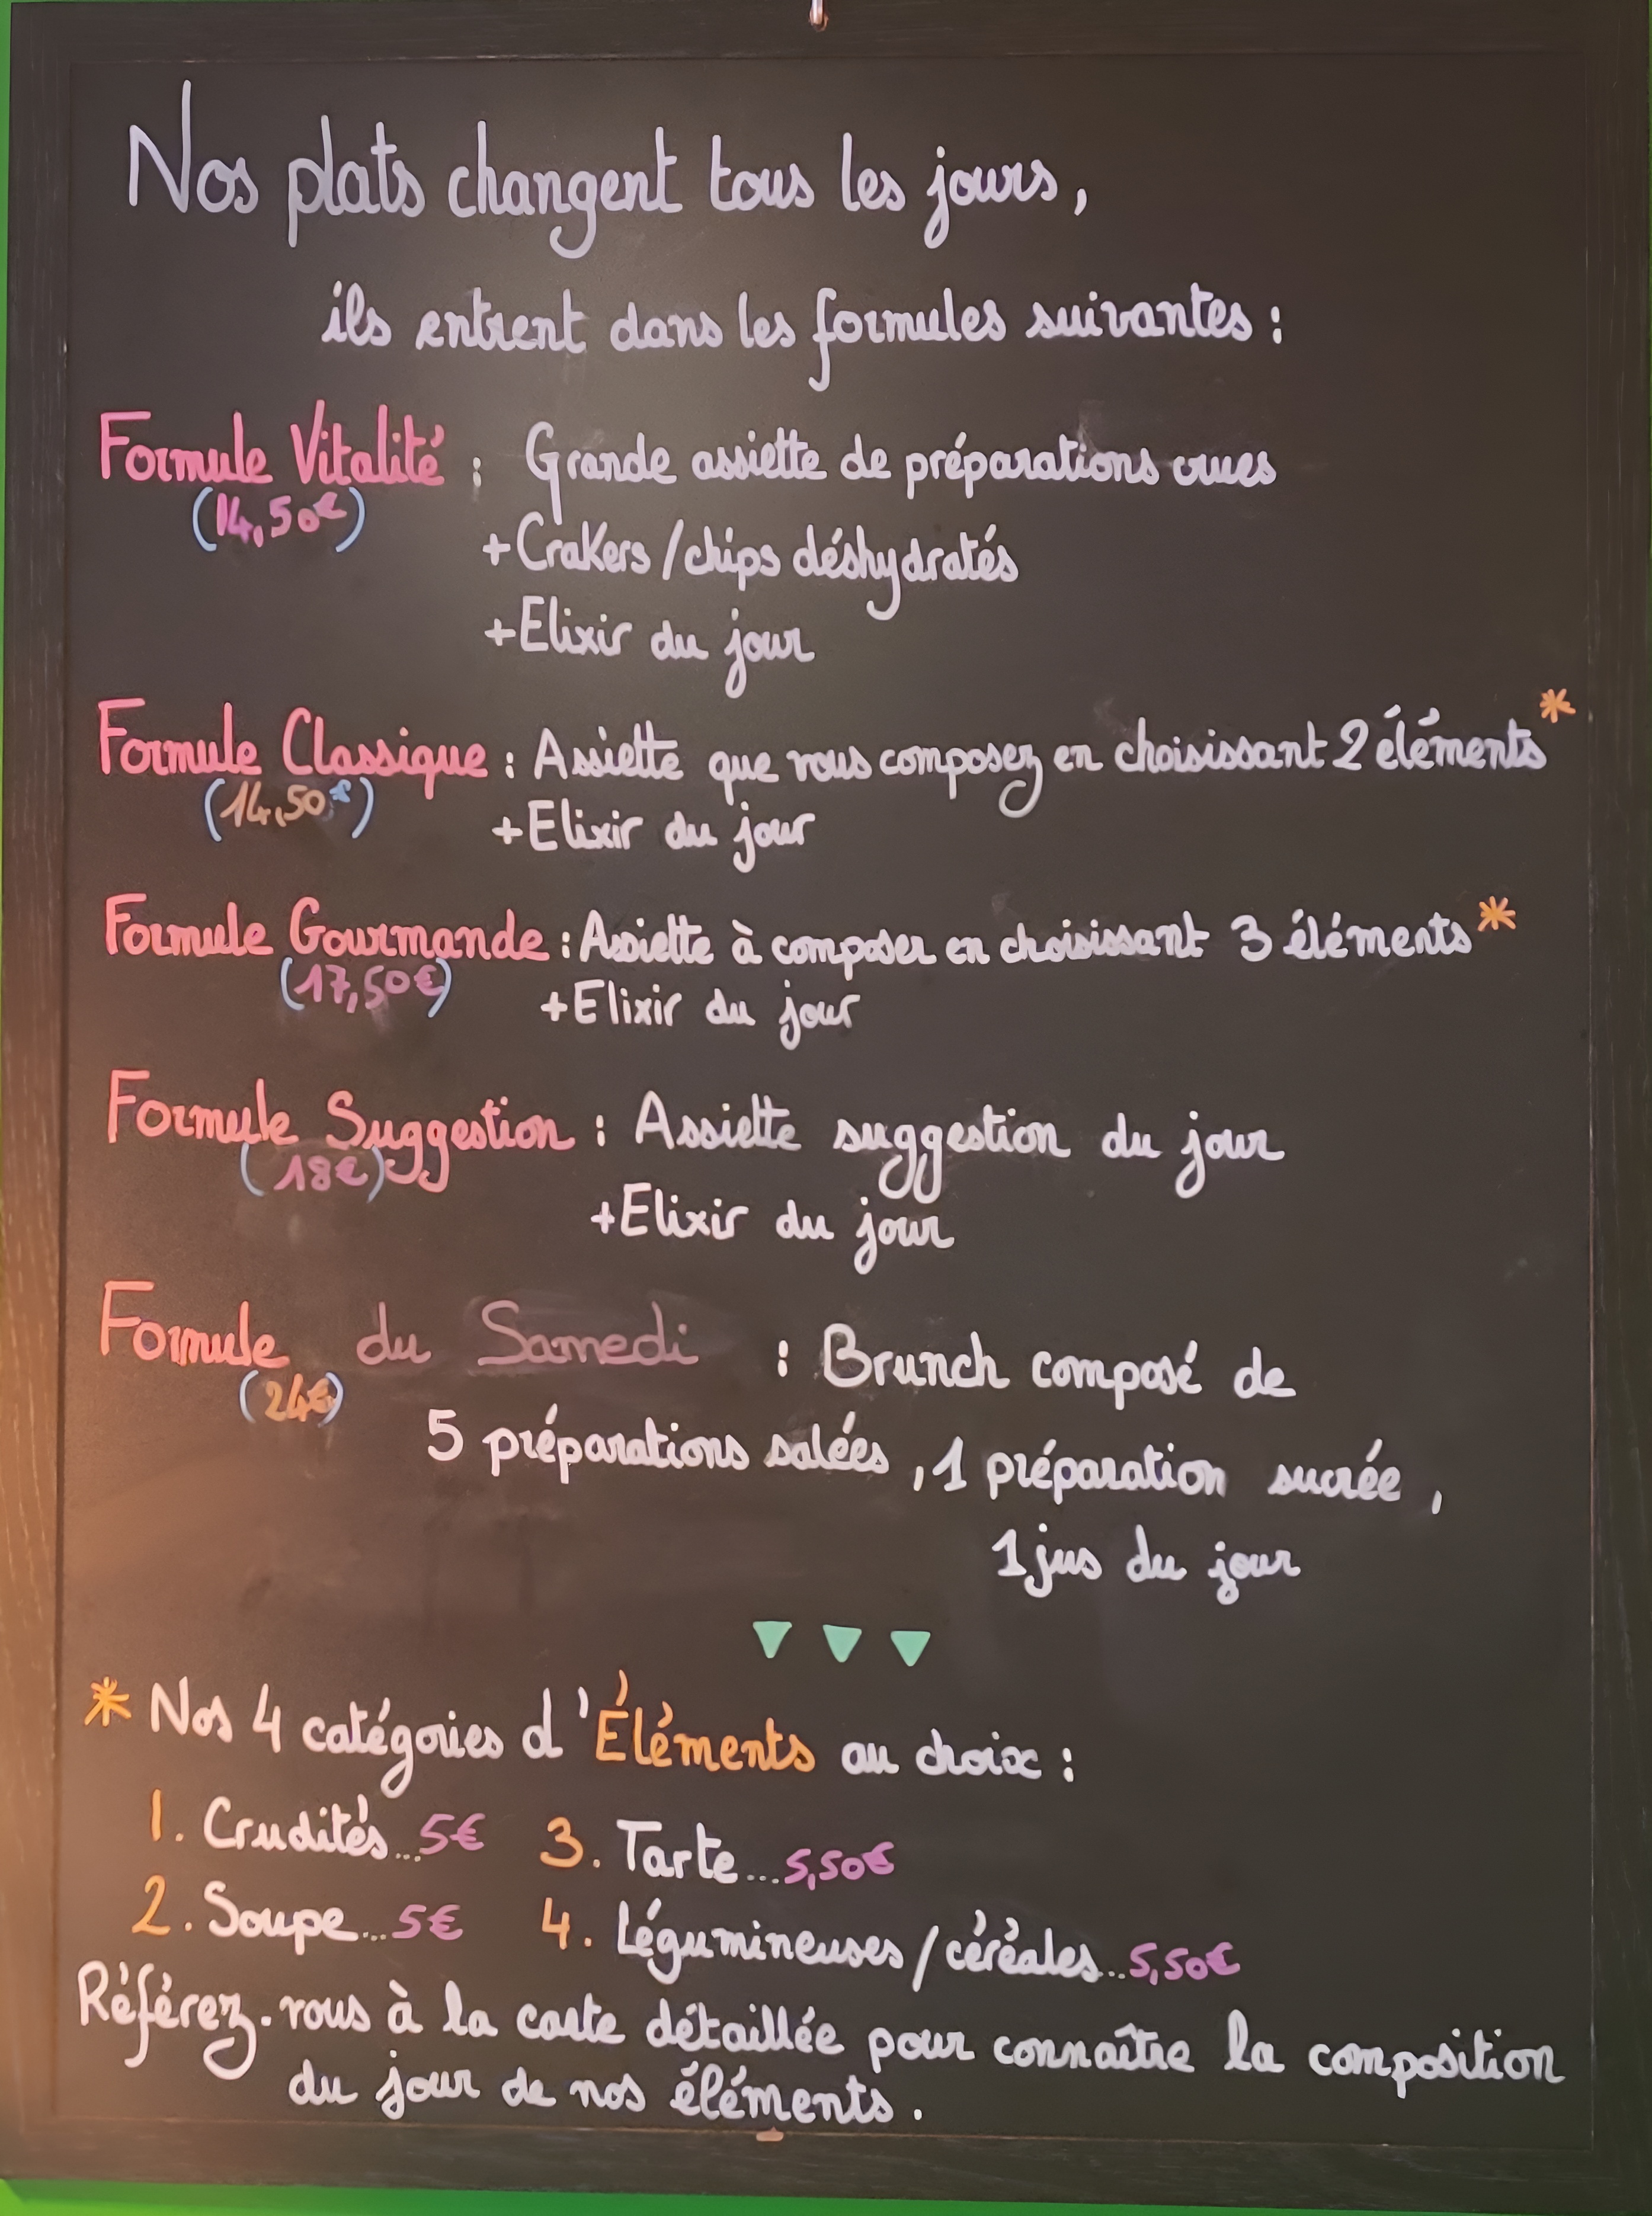 Nos plats changent tous les jours,
ils entrent dans les formules suivantes :
Formule Vitalité : Grande assiette de préparations crues
(14,50€)
+Crakers /chips déshydratés
+Elixir du jour
Formule Classique : Assiette que vous composez en choisissant 2 éléments*
(14,50€)
+Elixir du jour
Formule Gourmande : Assiette à composer en choisissant 3 éléments*
(17,50€)
+Elixir du jour
Formule Suggestion : Assiette suggestion du jour
(18€)
+Elixir du jour
Formule du Samedi : Brunch composé de
(24€)
5 préparations salées, 1 préparation sucrée,
1 jus du jour
* Nos 4 catégories d'Éléments au choix :
1. Crudités...5€ 3. Tarte...5,50€
2. Soupe...5€ 4. Légumineuses/céréales...5,50€
Référez-vous à la carte détaillée pour connaître la composition
du jour de nos éléments.